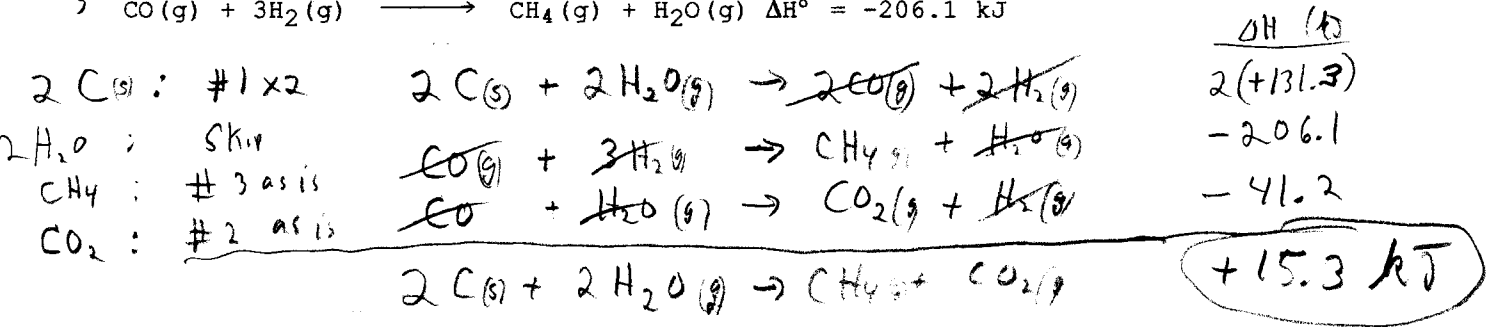 CO(g) + 3H₂(g) ⟶ CH₄(g) + H₂O(g) ΔH° = -206.1 kJ
ΔH (kJ)
2 C(s) : #1 x2 2 C(s) + 2 H₂O(g) → 2CO(g) + 2 H₂(g) 2(+131.3)
2H₂O : Skip
CO(g) + 3H₂(g) → CH₄(g) + H₂O(g) -206.1
CH₄ : # 3 as is
CO + H₂O (g) → CO₂(g) + H₂(g) -41.2
CO₂ : # 2 as is
2 C(s) + 2 H₂O(g) → CH₄(g) + CO₂(g) +15.3 kJ